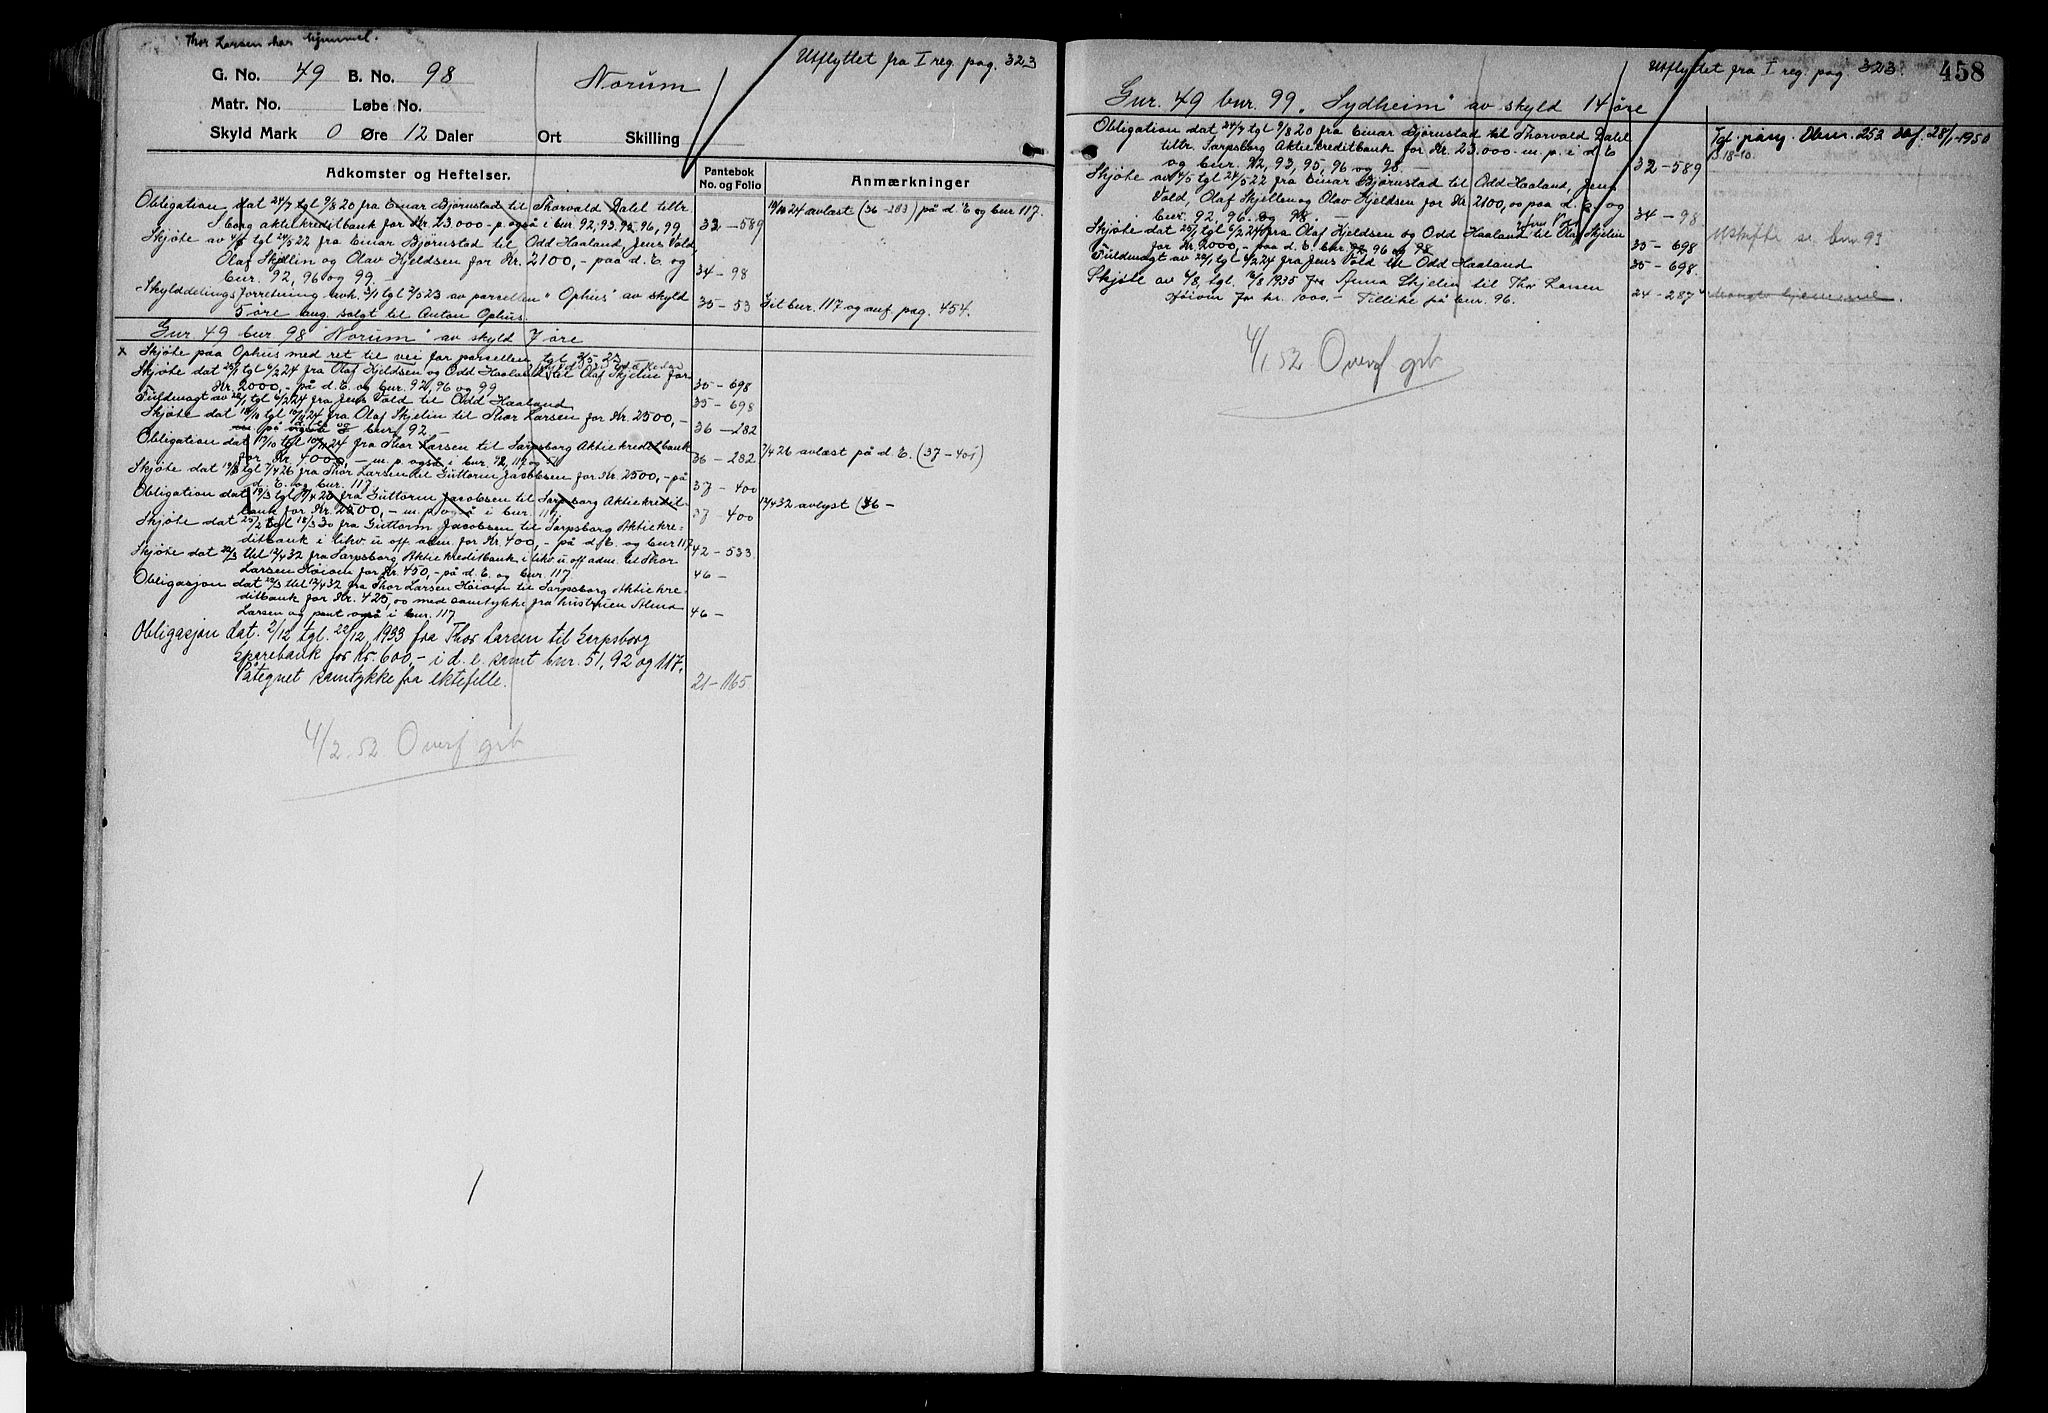 Thor Larsen har hjemmel.
G. No. 49 B. No. 98
Norum
Utflyttet fra I reg. pag. 323
Matr. No. Løbe No.
Skyld Mark 0 Øre 12 Daler Ort Skilling
Adkomster og Heftelser.
Pantebok No. og Folio
Anmærkninger
Obligation dat 24/7 tgl 9/8 20 fra Einar Bjørnstad til Thorvald Dalel tiltr.
S.borg aktiekreditbank for Kr. 23.000 - m. p. også i bnr. 92, 93, 95, 96, 99
32 - 589
14/10 24 avlæst (36-283) på d. E og bnr 117.
Skjøte av 4/5 tgl 24/5 22 fra Einar Bjørnstad til Odd Haaland, Jens Vold,
Olaf Skjelin og Olav Hjeldsen for Kr. 2100,- paa d. E og
bnr. 92, 96 og 99.
34 - 98
Skylddelingsforretning avh. 3/1 tgl 2/5 23 av parcellen "Ophus" av skyld
5 øre bug. solgt til Anton Ophus.
35 - 53
Git bnr. 117 og anf. pag. 454.
Gnr 49 bnr 98 "Norum" av skyld 7 øre
x Skjøte paa Ophus med ret til vei for parcellen tgl 2/5-23
Skjøte dat 25/1 tgl 6/2 24 fra Olaf Hjeldsen og Odd Haaland til Olaf Skjelin for
Kr. 2000,- på d. E. og bnr. 92, 96 og 99
35 - 698
Fuldmagt av 22/1 tgl 6/2 24 fra Jens Vold til Odd Haaland
35 - 698
Skjøte dat 18/10 tgl 14/10 24 fra Olaf Skjelin til Thor Larsen for Kr. 2500,-
på bnr. 92.
36 - 282
Obligation dat 17/10 tgl 24 fra Thor Larsen til Sarpsborg Aktiekreditbank
for Kr. 4000,- m. p. også i bnr. 92, 117 og 51
36 - 282
7/4 26 avlæst på d. E. (37-401)
Skjøte dat 19/3 tgl 7/4 26 fra Thor Larsen til Guttorm Jacobsen for Kr. 2500,- på
d. E. og bnr. 117
37 - 400
Obligation dat 19/3 tgl 7/4 26 fra Guttorm Jacobsen til Sarpsborg Aktiekredit-
bank for Kr. 2500,- m. p. også i bnr. 117
37 - 400
12/4 32 avlyst (46 -
Skjøte dat 25/2 tgl 18/3 30 fra Guttorm Jacobsen til Sarpsborg Aktiekre-
ditbank i likv. u off adm. for Kr. 400,- på d. E. og bnr 117
42 - 533
Skjøte dat 22/3 tgl 12/4 32 fra Sarpsborg Aktiekreditbank i likv. u. off adm. til Thor
Larsen Høiom for Kr. 450,- på d. E. og bnr. 117
46 -
Obligasjon dat 22/3 tgl 12/4 32 fra Thor Larsen Høiom til Sarpsborg Aktiekre-
ditbank for Kr. 425,00 med samtykke fra hustruen Alma
Larsen og pant også i bnr. 117
46 -
Obligasjon dat. 2/12 tgl. 22/12 1933 fra Thor Larsen til Sarpsborg
Sparebank for Kr. 600,- i d. e. samt bnr. 51, 92 og 117.
Påtegnet samtykke fra ektefelle.
21 - 165
4/2 52 Overf grb
Utflyttet fra I reg. pag. 323.
458
Gnr. 49 bnr. 99 "Sydheim" av skyld 14 øre
Obligation dat 24/7 tgl 9/8 20 fra Einar Bjørnstad til Thorvald Dalel
tiltr. Sarpsborg Aktiekreditbank for Kr. 23.000 - m. p. i d. E
og bnr. 92, 93, 95, 96 og 98. -
32 - 589
Tgl. 253 28/1 - 1950
§ 18-10.
Skjøte av 4/5 tgl 24/5 22 fra Einar Bjørnstad til Odd Haaland, Jens
Vold, Olaf Skjellin og Olav Hjeldsen for Kr 2100,00 paa d. E. og
bnr. 92, 96 og 98. -
34 - 98
Skjøte dat 25/1 tgl 6/2 24 fra Olaf Hjeldsen og Odd Haaland til Olaf Skjelin
for Kr. 2000,- paa d. E. bnr. 92, 96 og 98
35 - 698
Utskifte se bnr 93
Fuldmagt av 22/1 tgl 6/2 24 fra Jens Vold til Odd Haaland
35 - 698.
Skjøte av 6/8, tgl. 12/8 1935 fra Anna Skjelin til Thor Larsen
Høiom for kr. 1000.- Tillike på bnr. 96.
24 - 287
Mangler hjemmel.
4/1 52 Overf grb